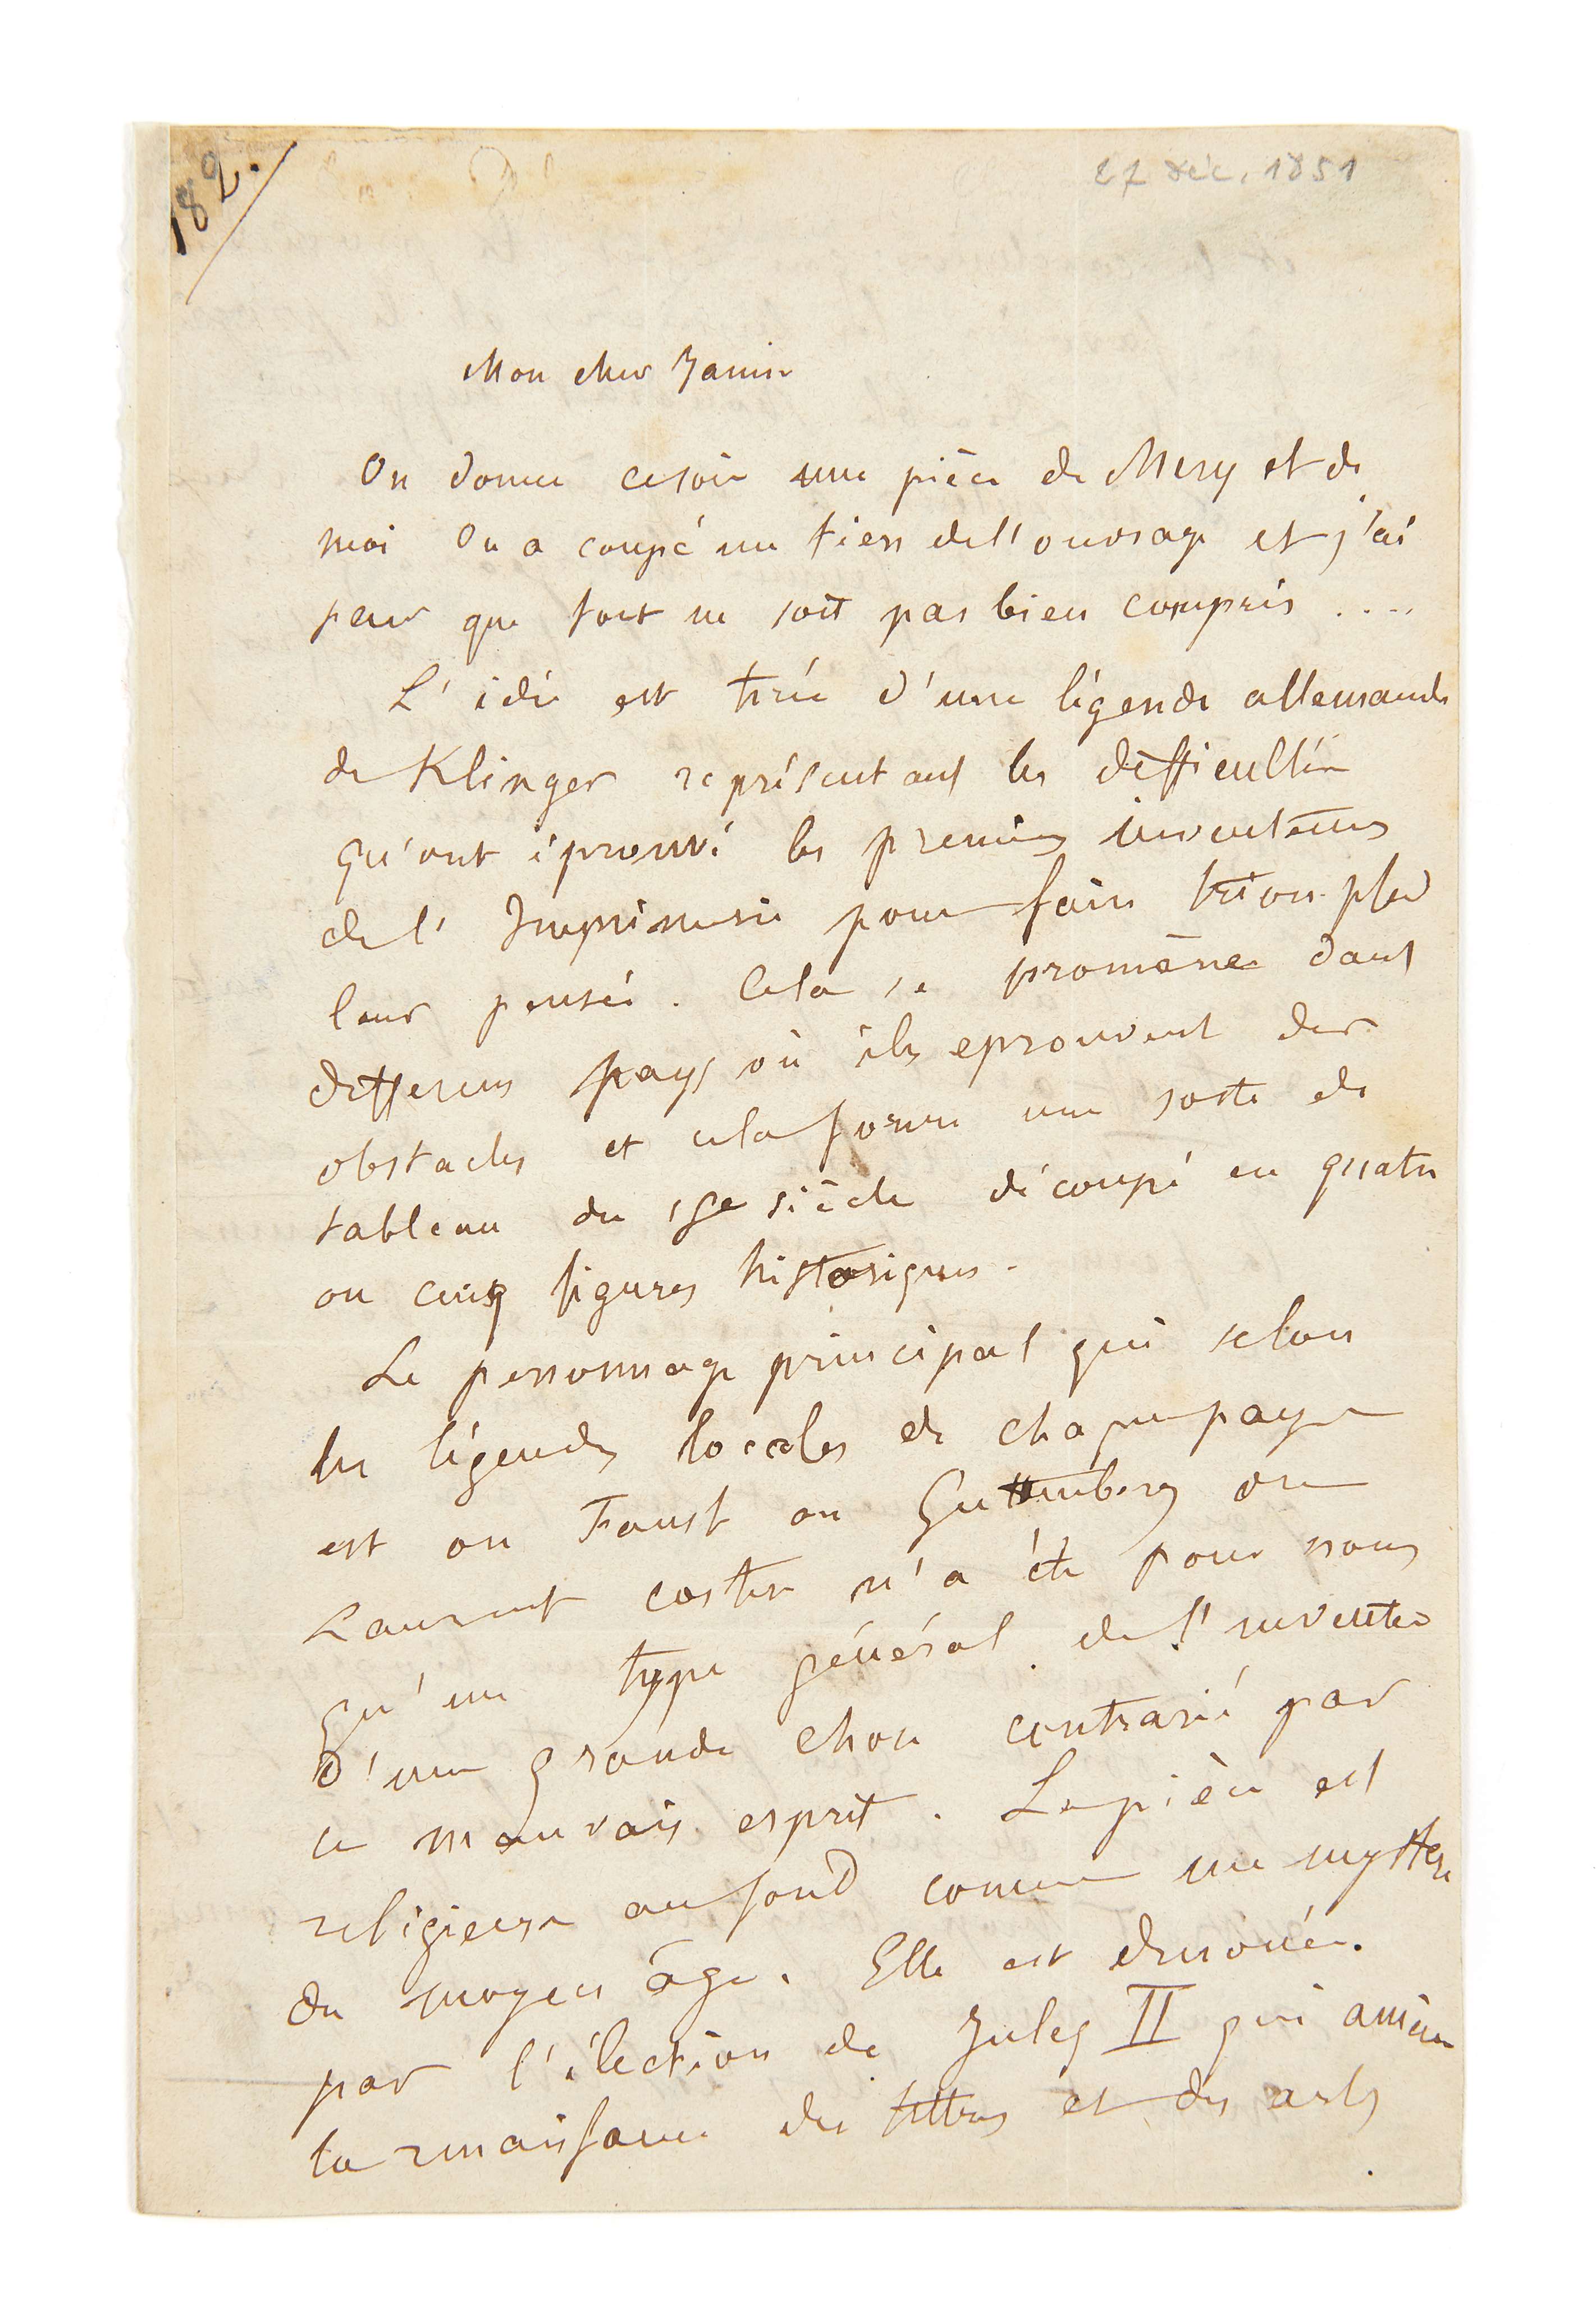 182.
27 déc. 1851
Mon cher Janin
On donne ce soir une pièce de Mery et de
moi On a coupé un tiers de l'ouvrage et j'ai
peur que tout ne soit pas bien compris ....
L'idée est tirée d'une légende allemande
de Klinger représentant les difficultés
qu'ont éprouvé les premiers inventeurs
de l'Imprimerie pour faire triompher
leur pensée. Cela se promène dans
differens pays où ils eprouvent des
obstacles et cela forme une sorte de
tableau du 15e siècle découpé en quatre
ou cinq figures historiques.
Le personnage principal qui selon
les légendes locales de chaque pays
est ou Faust ou Guttemberg ou
Laurent coster n'a été pour nous
qu'un type général de l'inventeur
d'une grande chose contrarié par
le mauvais esprit. La pièce est
religieuse au fond comme un mystère
du moyen âge. Elle est dénouée.
par l'élection de Jules II qui amène
la renaissance des lettres et des arts